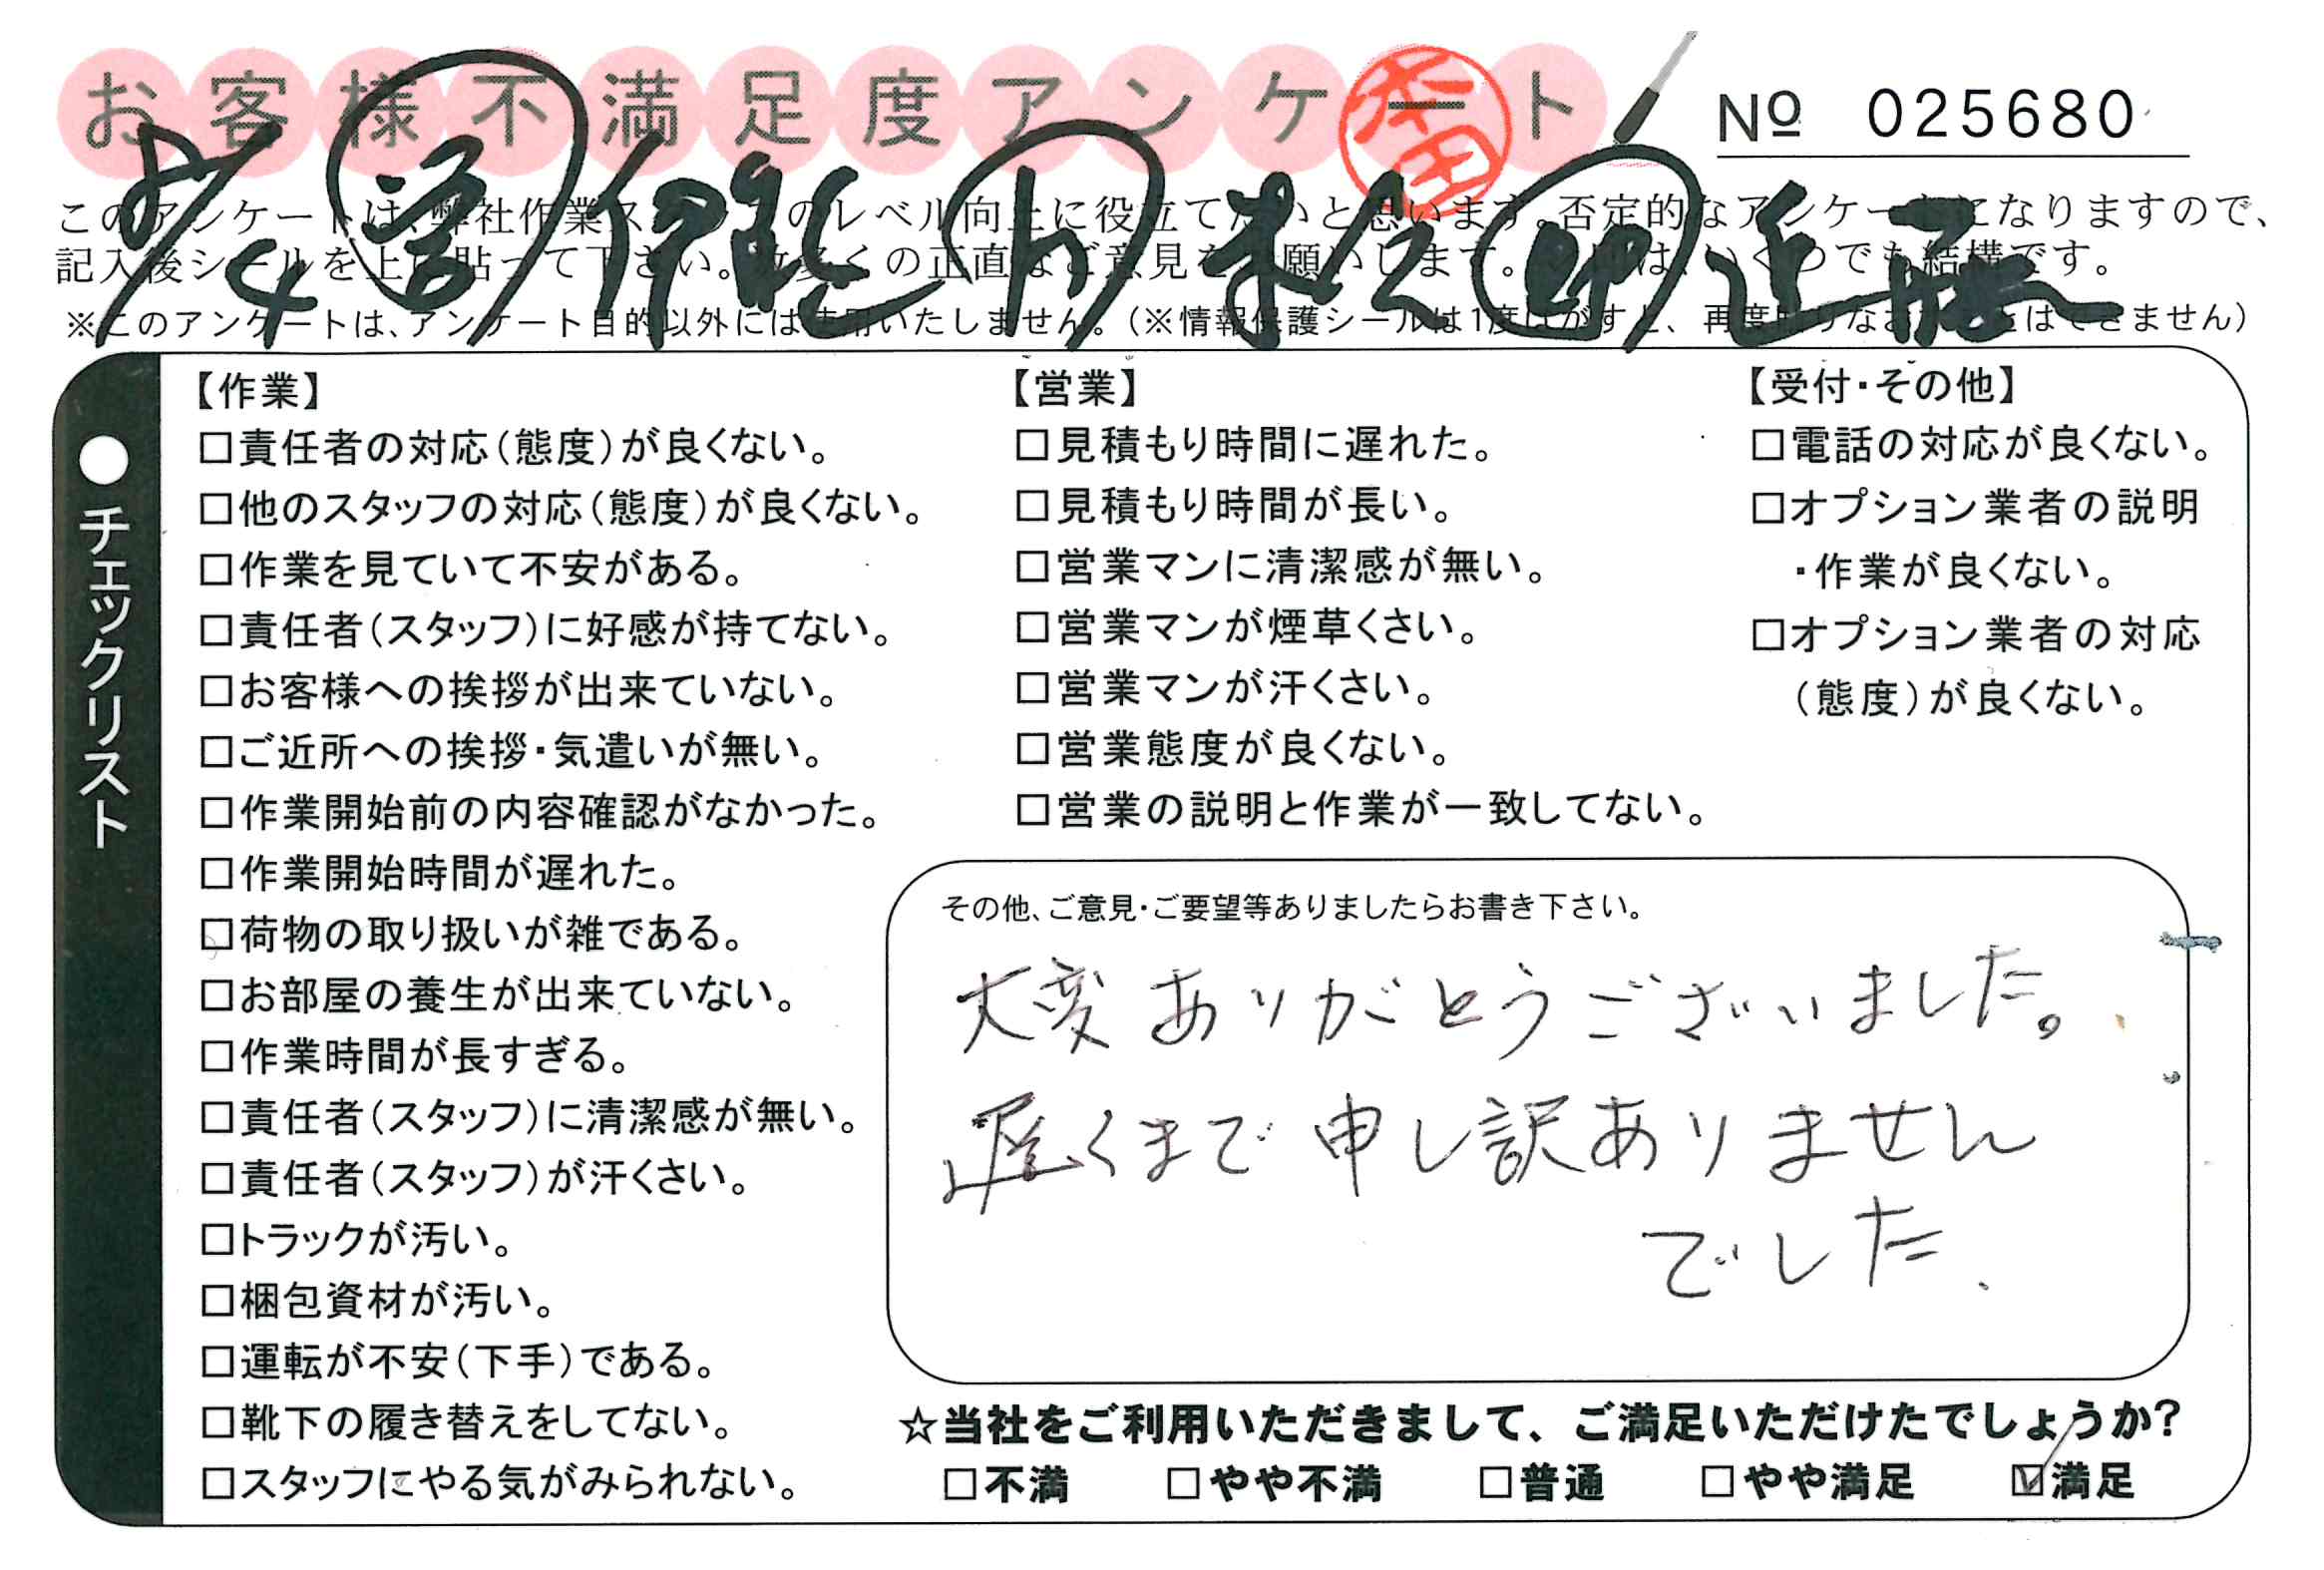 お客様不満足度アンケート
本田
№ 025680
このアンケートは、弊社作業スタッフのレベル向上に役立てたいと思います。否定的なアンケートになりますので、
記入後シールを上に貼って下さい。数多くの正直なご意見をお願いします。
※このアンケートは、アンケート目的以外には使用いたしません。（※情報保護シールは1度はがすと、再度貼りなおすことはできません）
●チェックリスト
【作業】
□責任者の対応（態度）が良くない。
□他のスタッフの対応（態度）が良くない。
□作業を見ていて不安がある。
□責任者（スタッフ）に好感が持てない。
□お客様への挨拶が出来ていない。
□ご近所への挨拶・気遣いが無い。
□作業開始前の内容確認がなかった。
□作業開始時間が遅れた。
□荷物の取り扱いが雑である。
□お部屋の養生が出来ていない。
□作業時間が長すぎる。
□責任者（スタッフ）に清潔感が無い。
□責任者（スタッフ）が汗くさい。
□トラックが汚い。
□梱包資材が汚い。
□運転が不安（下手）である。
□靴下の履き替えをしてない。
□スタッフにやる気がみられない。
【営業】
□見積もり時間に遅れた。
□見積もり時間が長い。
□営業マンに清潔感が無い。
□営業マンが煙草くさい。
□営業マンが汗くさい。
□営業態度が良くない。
□営業の説明と作業が一致してない。
【受付・その他】
□電話の対応が良くない。
□オプション業者の説明
・作業が良くない。
□オプション業者の対応
（態度）が良くない。
その他、ご意見・ご要望等ありましたらお書き下さい。
大変ありがとうございました。
遅くまで申し訳ありません
でした。
☆当社をご利用いただきまして、ご満足いただけたでしょうか?
□不満 □やや不満 □普通 □やや満足 ☑満足